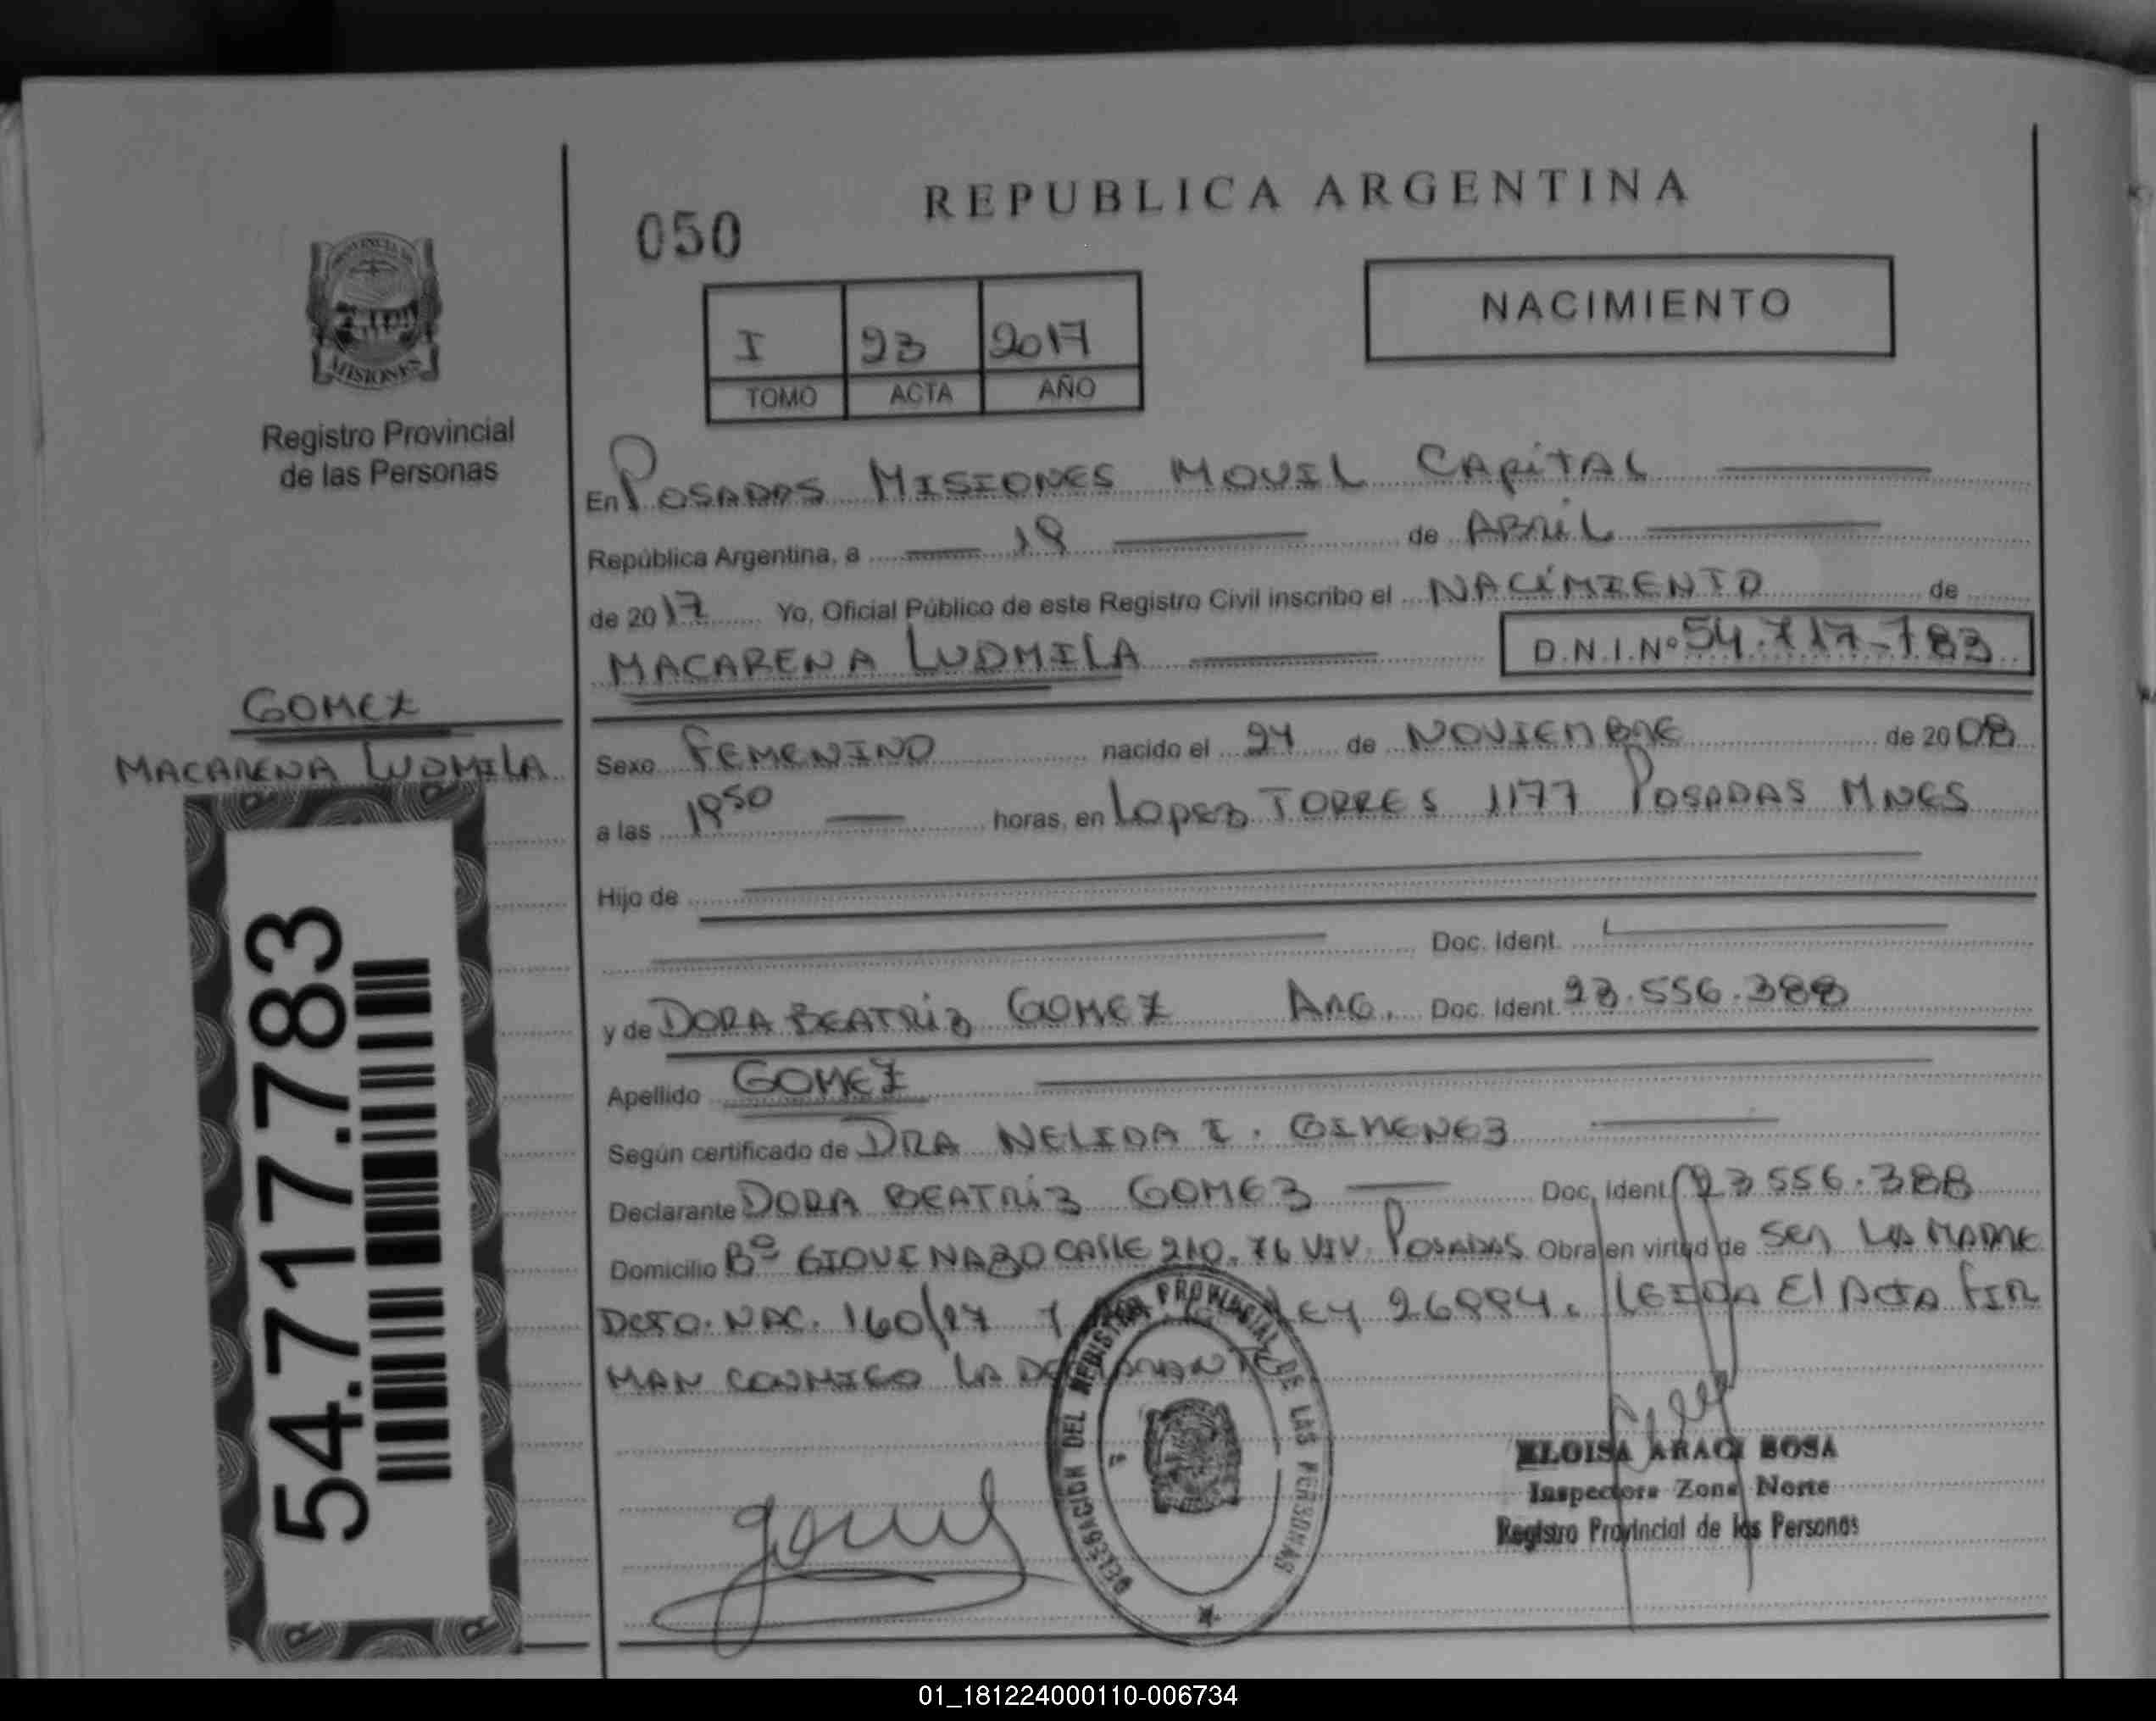 REPUBLICA ARGENTINA
050
NACIMIENTO
PROVINCIA DE
MISIONES
I 23 2017
TOMO ACTA AÑO
Registro Provincial
de las Personas
En POSADAS MISIONES MOVIL CAPITAL
República Argentina, a 18 de ABRIL
de 2017 Yo, Oficial Público de este Registro Civil inscribo el NACIMIENTO de
MACARENA LUDMILA D.N.I.Nº 54.717.783
GOMEZ
MACARENA LUDMILA
Sexo FEMENINO nacido el 24 de NOVIEMBRE de 2008
a las horas, en LOPEZ TORRES 1177 POSADAS MNES
Hijo de
Doc. Ident.
y de DORA BEATRIZ GOMEZ ARG. Doc. Ident. 23.556.388
Apellido GOMEZ
Según certificado de DRA NELIDA I. GIMENEZ
Declarante DORA BEATRIZ GOMEZ Doc. Ident. 23556.388
Domicilio Bº GIOVENAZO CALLE 210. 76 VIV. POSADAS Obra en virtud de SER LA MADRE
DCTO. NAC. 160/17 Y LEY 26994. LEIDA El ACTA FIR
MAN CONMIGO LA DECLARANTE
54.717.783
DELEGACION DEL REGISTRO PROVINCIAL DE LAS PERSONAS
ELOISA ARACI BOSA
Inspectora Zona Norte
Registro Provincial de las Personas
01_181224000110-006734